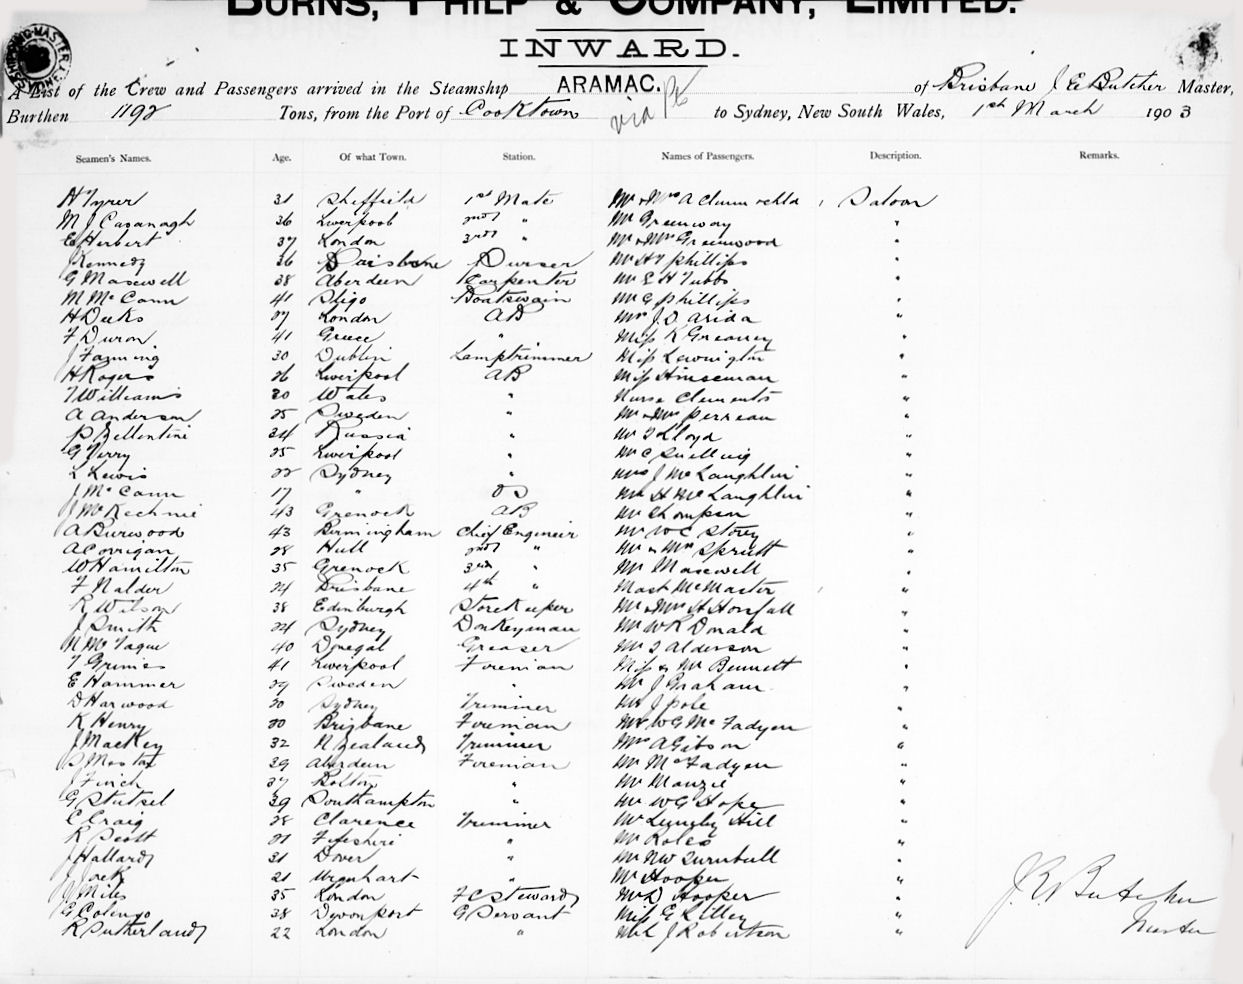 BURNS, PHILP & COMPANY, LIMITED.
INWARD.
A List of the Crew and Passengers arrived in the Steamship ARAMAC. of Brisbane J E Butcher Master,
Burthen 1192 Tons, from the Port of Cooktown via to Sydney, New South Wales, 1st March 1903
Seamen's Names. Age. Of what Town. Station. Names of Passengers. Description. Remarks.
H Tyrer 31 Sheffield 1st Mate Mr & Mrs A Clunn & chld Saloon
M J Cavanagh 36 Liverpool 2nd " Mr Greenway "
E Herbert 37 London 3rd " Mr & Mrs Greenwood "
J Kennedy 36 Brisbane Purser Mr H Y Phillips "
G Maxwell 38 Aberdeen Carpenter Mr E H Tubbs "
M McCann 41 Sligo Boatswain Mr G Phillips "
H Deeks 27 London AB Mr J D Arida "
F Duron 41 Greece " Miss K Greaney "
J Fanning 30 Dublin Lamptrimmer Miss Lewington "
H Rogers 26 Liverpool AB Miss Hinseman "
T Williams 30 Wales " Nurse Clements "
A Anderson 25 Sweden " Mr & Mrs Perreau "
P Bellentini 34 Russia " Mr T Lloyd "
G Terry 25 Liverpool " Mr C Snelling "
L Lewis 22 Sydney " Mrs J McLaughlin "
J McCann 17 " OS Mr H McLaughlin "
J McKechnie 43 Grenock AB Mr Thompson "
A Burwood 43 Birmingham Chief Engineer Mr W C Storey "
A Corrigan 28 Hull 2nd " Mr & Mrs Spratt "
W Hamilton 35 Grenock 3rd " Mr Maxwell "
F Nalder 24 Brisbane 4th " Mast McMaster "
R Wilson 38 Edinburgh Storekeeper Mr & Mrs H Horsfall "
J Smith 24 Sydney Donkeyman Mr W R Donald "
N McTague 40 Donegal Greaser Mr T Alderson "
T Grimes 41 Liverpool Fireman Miss & Mr Bennett "
E Hammer 29 Sweden " Mr J Graham "
D Harwood 20 Sydney Trimmer Mr J Pole "
K Henry 30 Brisbane Fireman Mr W G McFadyen "
J Mackey 32 N Zealand Trimmer Mrs A Gibson "
S 39 Aberdeen Fireman Mr McFadyen "
J Finch 37 Bolton " Mr Manzie "
G Stutsel 39 Southampton " Mr W G Hope "
C Craig 28 Clarence Trimmer Mr Lyngby Hill "
R Scott 21 Fifeshire " Mr Roles "
J Hallard 31 Dover " Mr N W Turnbull "
J Jack 21 Urquhart " Mr Hooper "
V Miles 35 London F C Steward Mr D Hooper "
G Colengo 38 Devonport G Servant Miss E Lilley "
R Sutherland 22 London " J Robertson "
J E Butcher
Master